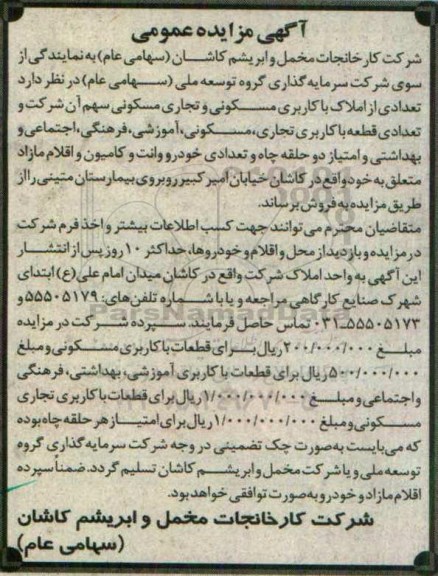 آگهی مزایده عمومی
شرکت کارخانجات مخمل و ابریشم کاشان (سهامی عام) به نمایندگی از
سوی شرکت سرمایه گذاری گروه توسعه ملی (سهامی عام) در نظر دارد
تعدادی از املاک با کاربری مسکونی و تجاری مسکونی سهم آن شرکت و
تعدادی قطعه با کاربری تجاری، مسکونی، آموزشی، فرهنگی، اجتماعی و
بهداشتی و امتیاز دو حلقه چاه و تعدادی خودرو وانت و کامیون و اقلام مازاد
متعلق به خود واقع در کاشان خیابان امیر کبیر روبروی بیمارستان متینی را از
طریق مزایده به فروش برساند.
متقاضیان محترم می توانند جهت کسب اطلاعات بیشتر و اخذ فرم شرکت
در مزایده و بازدید از محل و اقلام و خودروها، حداکثر ۱۰ روز پس از انتشار
این آگهی به واحد املاک شرکت واقع در کاشان میدان امام علی (ع) ابتدای
شهرک صنایع کارگاهی مراجعه و یا با شماره تلفن های: ۵۵۵۰۵۱۷۹ و
۵۵۵۰۵۱۷۳-۰۳۱ تماس حاصل فرمایند. سپرده شرکت در مزایده
مبلغ ۲۰۰/۰۰۰/۰۰۰ ریال برای قطعات با کاربری مسکونی و مبلغ
۵۰۰/۰۰۰/۰۰۰ ریال برای قطعات با کاربری آموزشی، بهداشتی، فرهنگی
و اجتماعی و مبلغ ۱/۰۰۰/۰۰۰/۰۰۰ ریال برای قطعات با کاربری تجاری
مسکونی و مبلغ ۱/۰۰۰/۰۰۰/۰۰۰ ریال برای امتیاز هر حلقه چاه بوده
که می بایست به صورت چک تضمینی در وجه شرکت سرمایه گذاری گروه
توسعه ملی و یا شرکت مخمل و ابریشم کاشان تسلیم گردد. ضمناً سپرده
اقلام مازاد و خودرو به صورت توافقی خواهد بود.
شرکت کارخانجات مخمل و ابریشم کاشان
(سهامی عام)
ParsNamadData